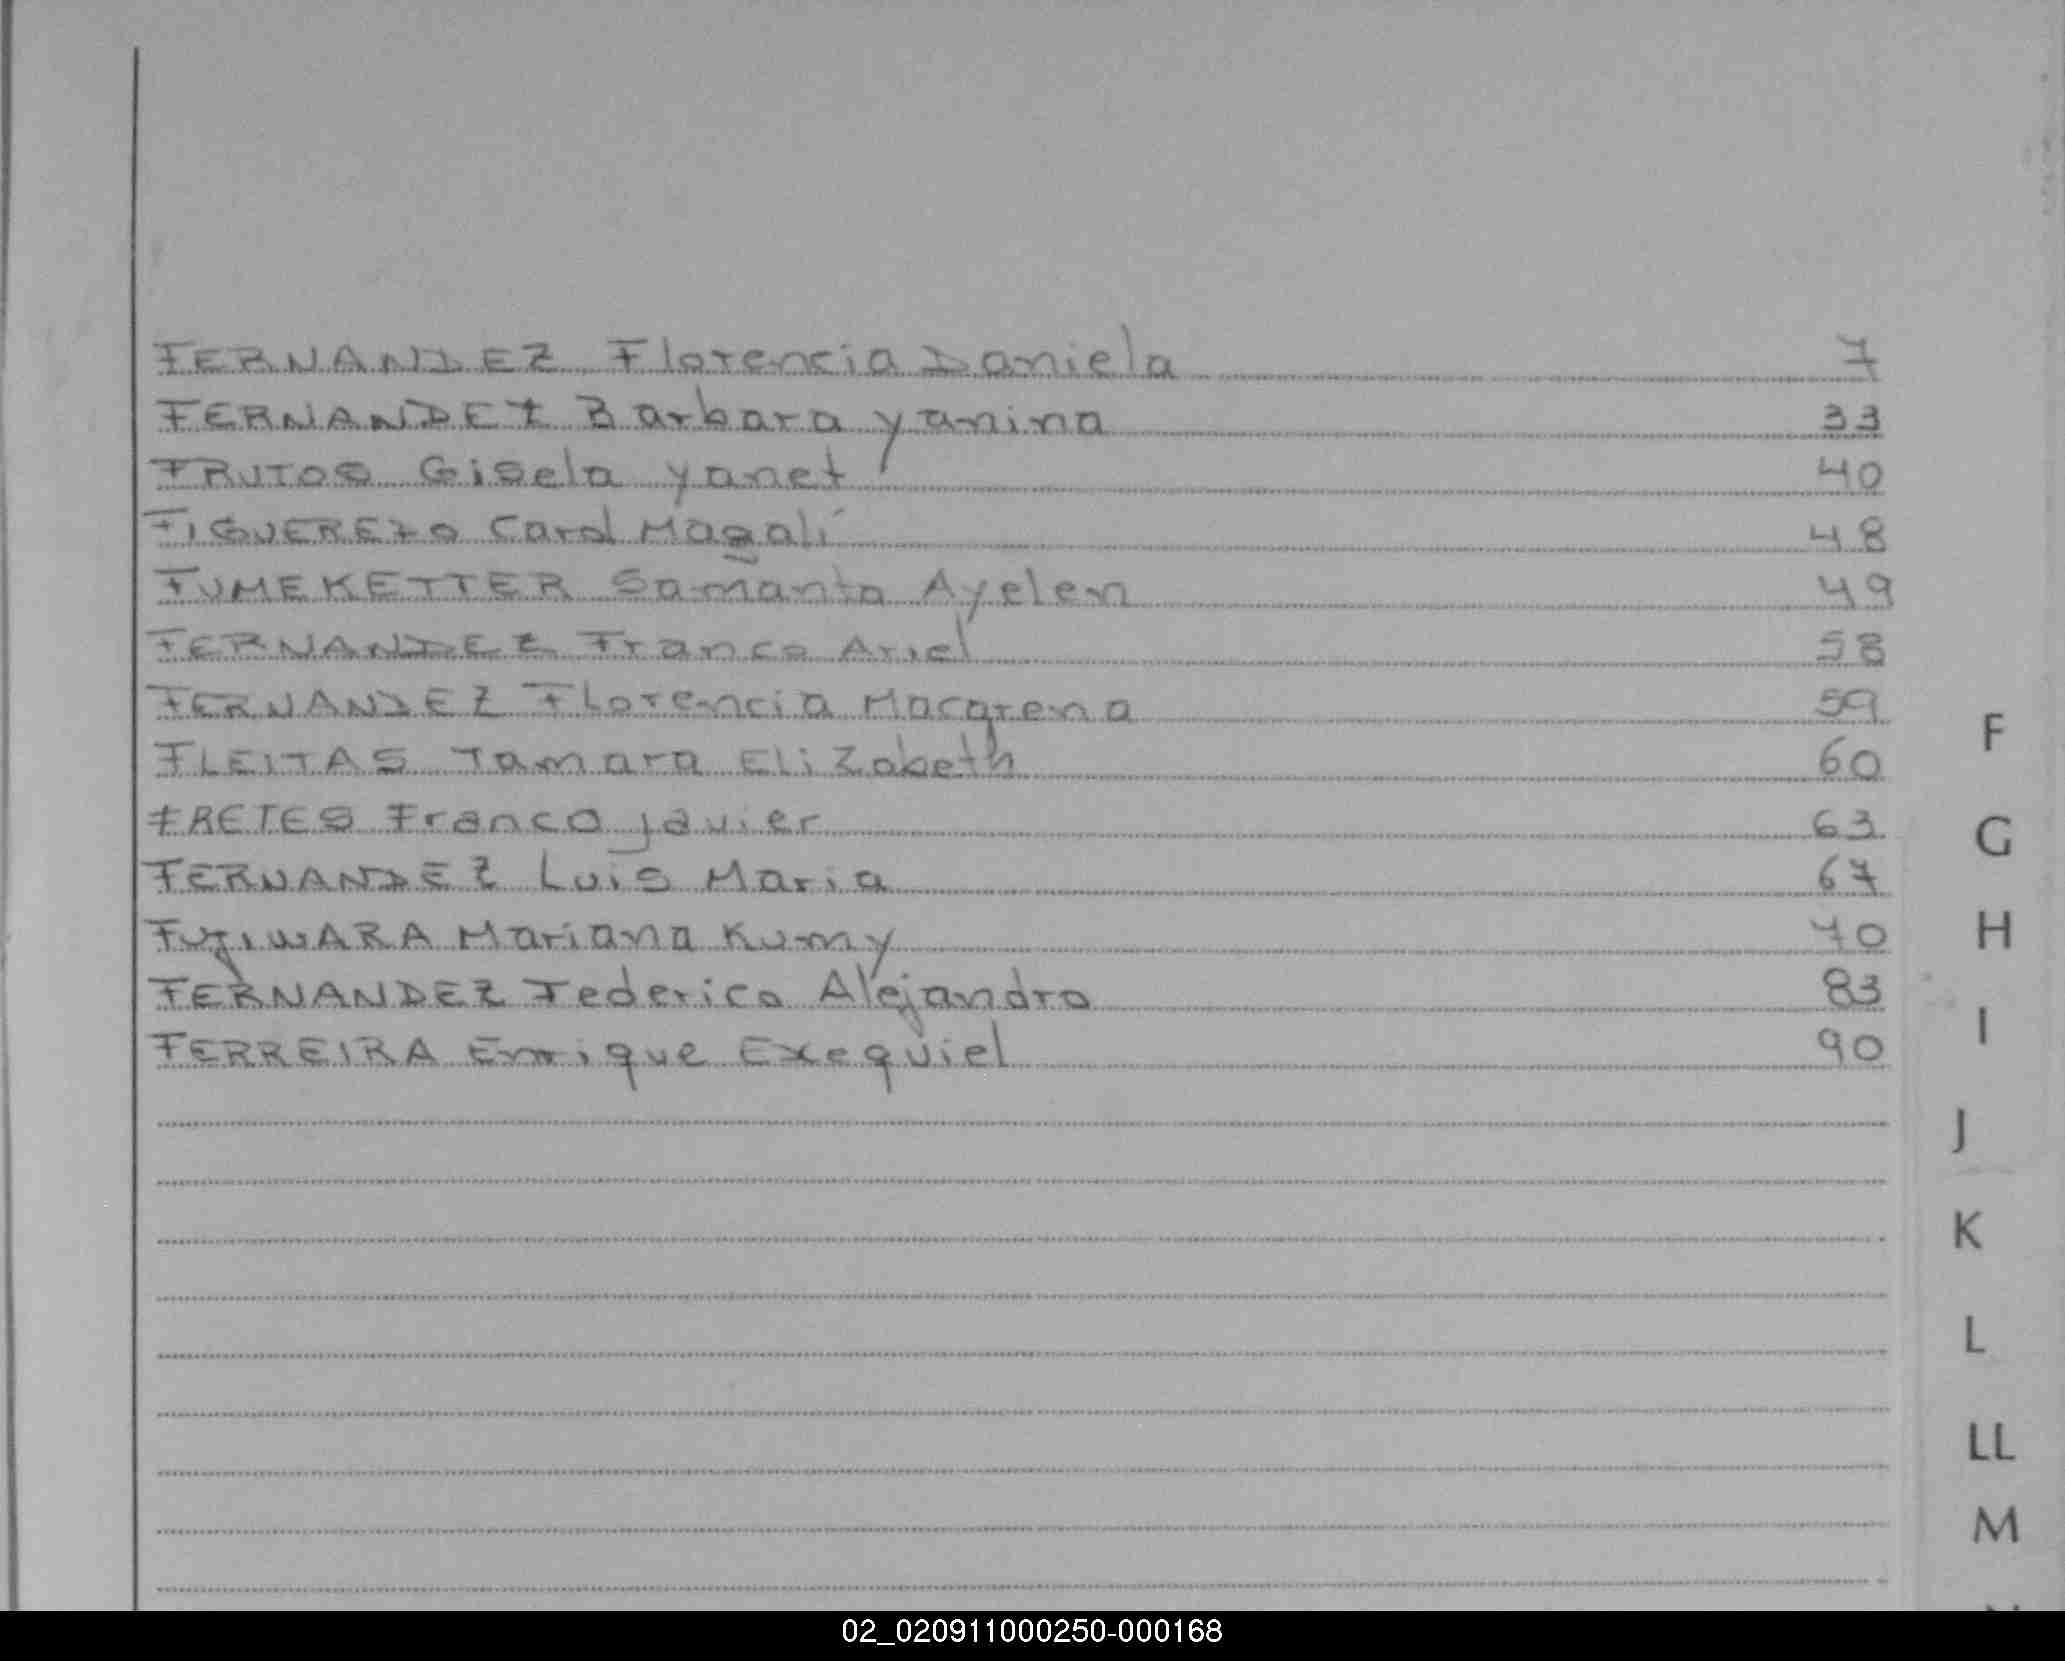 FERNANDEZ Florencia Daniela 7
FERNANDEZ Barbara yanina 33
FRUTOS Gisela yanet 40
FIGUEREZO Carol Magalí 48
FUMEKETTER Samanta Ayelen 49
FERNANDEZ Franco Ariel 58
FERNANDEZ Florencia Macarena 59
FLEITAS Tamara EliZabeth 60
FRETES Franco javier 63
FERNANDEZ Luis Maria 67
FUJIWARA Mariana Kumy 70
FERNANDEZ Federico Alejandro 83
FERREIRA Enrique Exequiel 90
F
G
H
I
J
K
L
LL
M
02_020911000250-000168